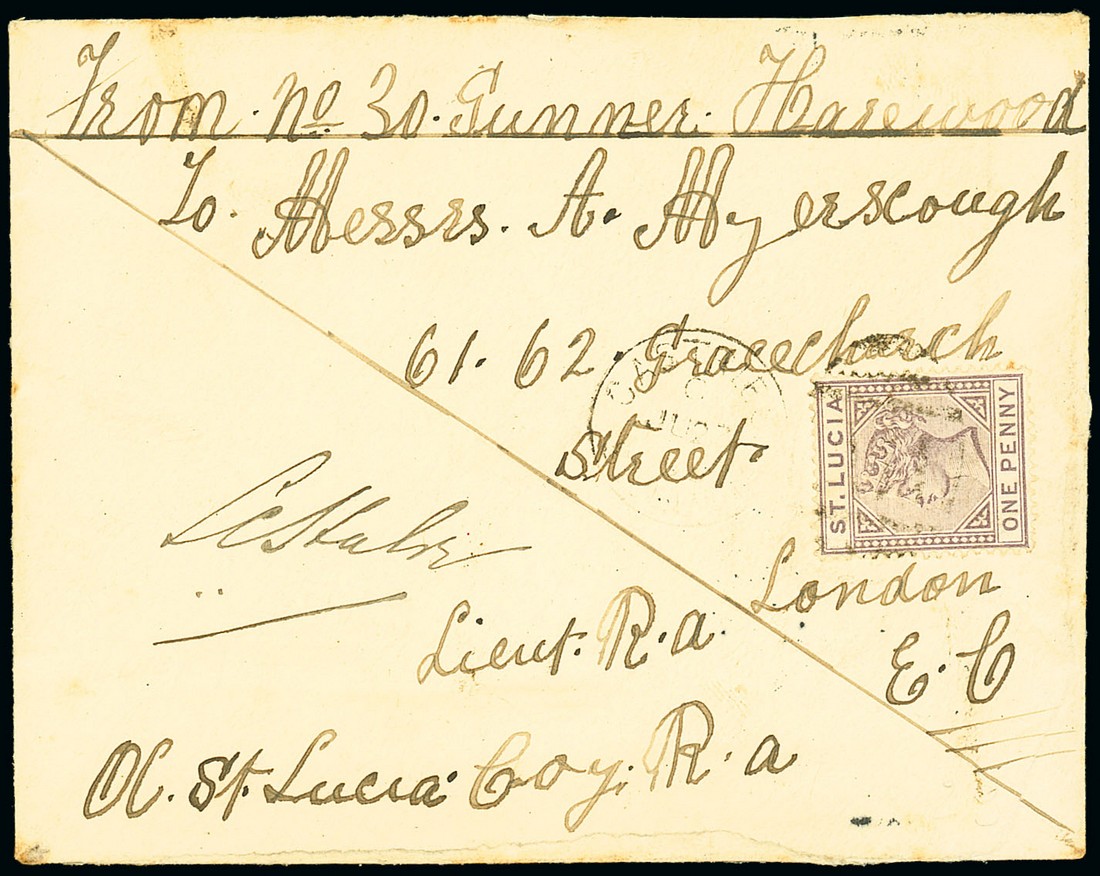 From. No 30. Gunner. Harewood
To. Messrs. A. Myerscough
61. 62. Gracechurch
Street
ST. LUCIA
ONE PENNY
London
E. C
Lieut. R. a.
OC. St. Lucia Coy. R. a